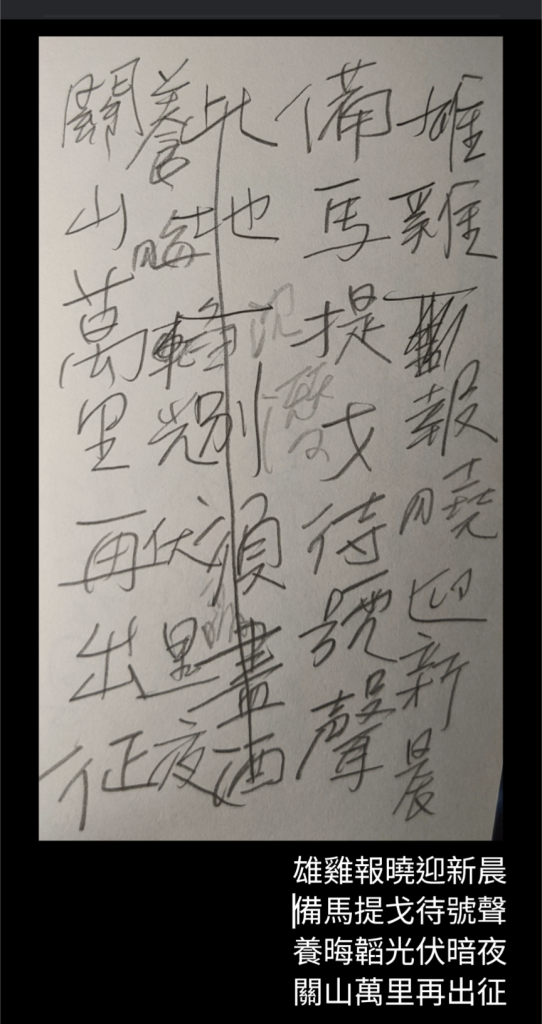 雄雞報曉迎新晨
備馬提戈待號聲
此地一別須盡酒
養晦韜光伏黑夜
關山萬里再出征
雄雞報曉迎新晨
備馬提戈待號聲
養晦韜光伏暗夜
關山萬里再出征